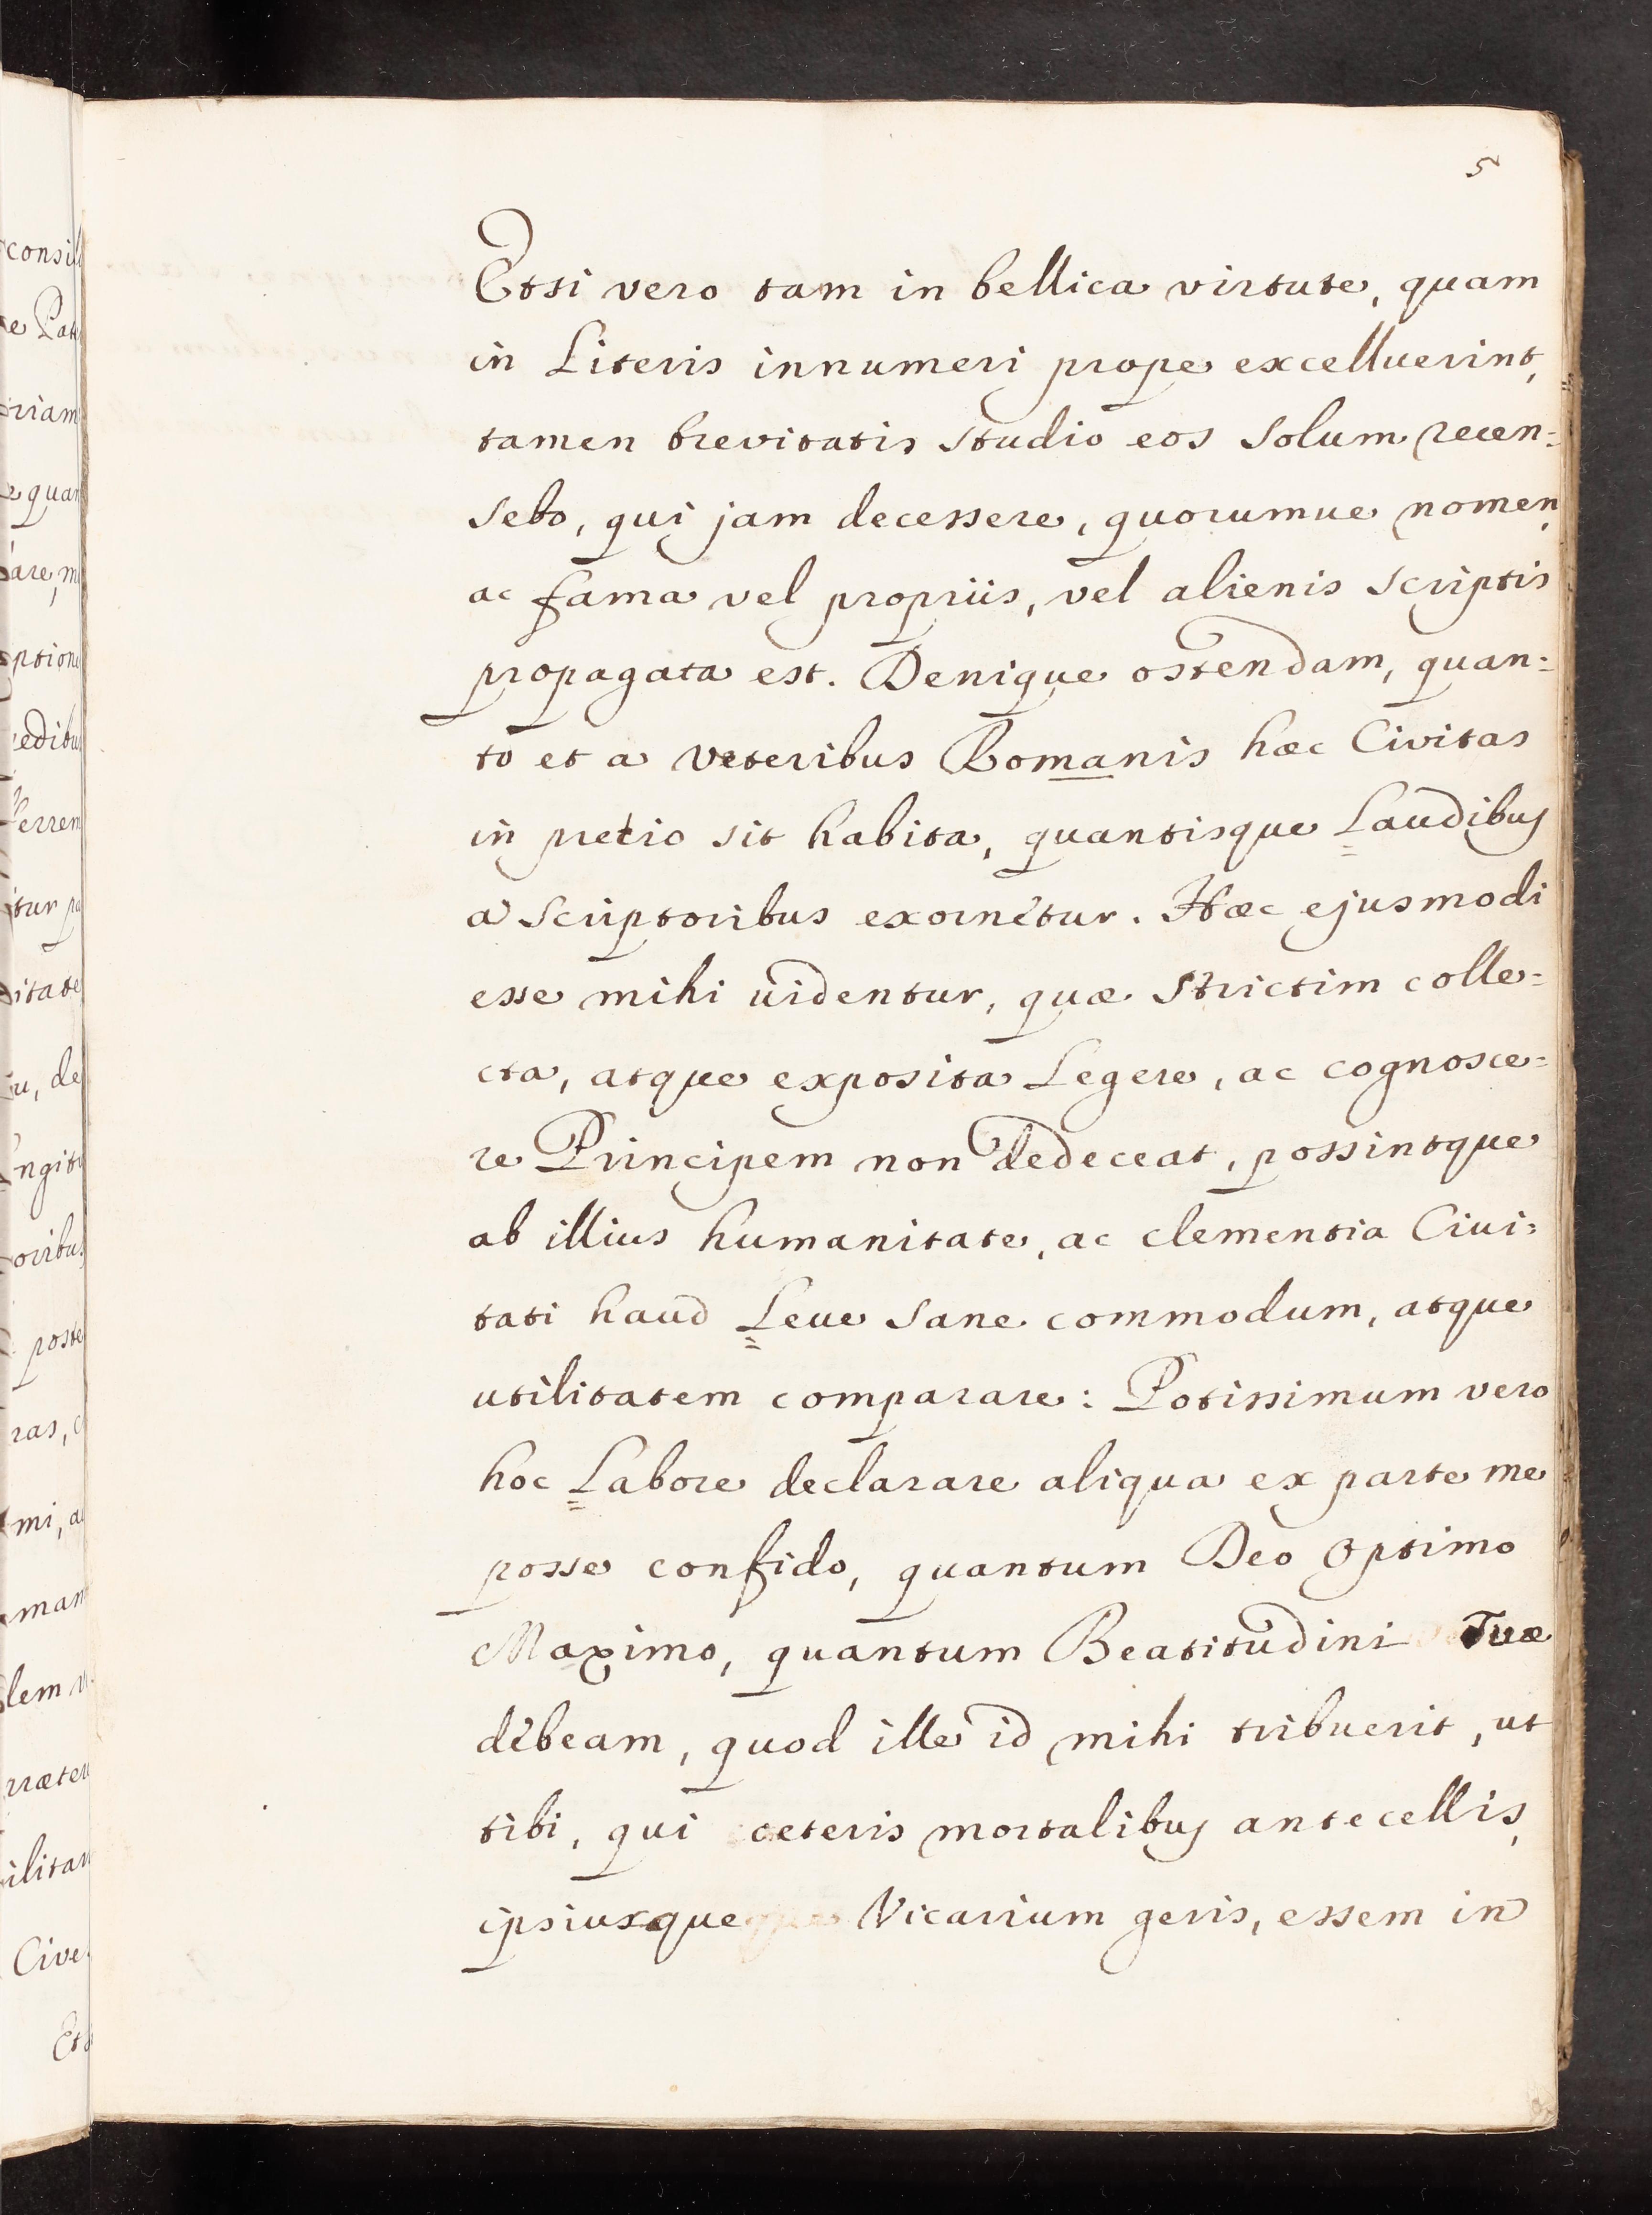 5
Etsi vero tam in bellica virtute, quam
in Literis innumeri prope excelluerint,
tamen brevitatis studio eos solum recen=
sebo, qui jam decessere, quorumue nomen,
ac fama vel propriis, vel alienis scriptis
propagata est. Denique ostendam, quan=
to et a veteribus Romanis hæc Civitas
in pretio sit habita, quantisque Laudibus
a scriptoribus exornetur. Hæc ejusmodi
esse mihi uidentur, quæ strictim colle=
cta, atque exposita Legere, ac cognosce=
re Principem non dedeceat, possintque
ab illius humanitate, ac clementia Ciui=
tati haud Leue sane commodum, atque
utilitatem comparare: Potissimum vero
hoc Labore declarare aliqua ex parte me
posse confido, quantum Deo Optimo
Maximo, quantum Beatitudini Tuæ
debeam, quod ille id mihi tribuerit, ut
tibi, qui ceteris mortalibus antecellis,
ipsiusque Vicarium geris, essem in